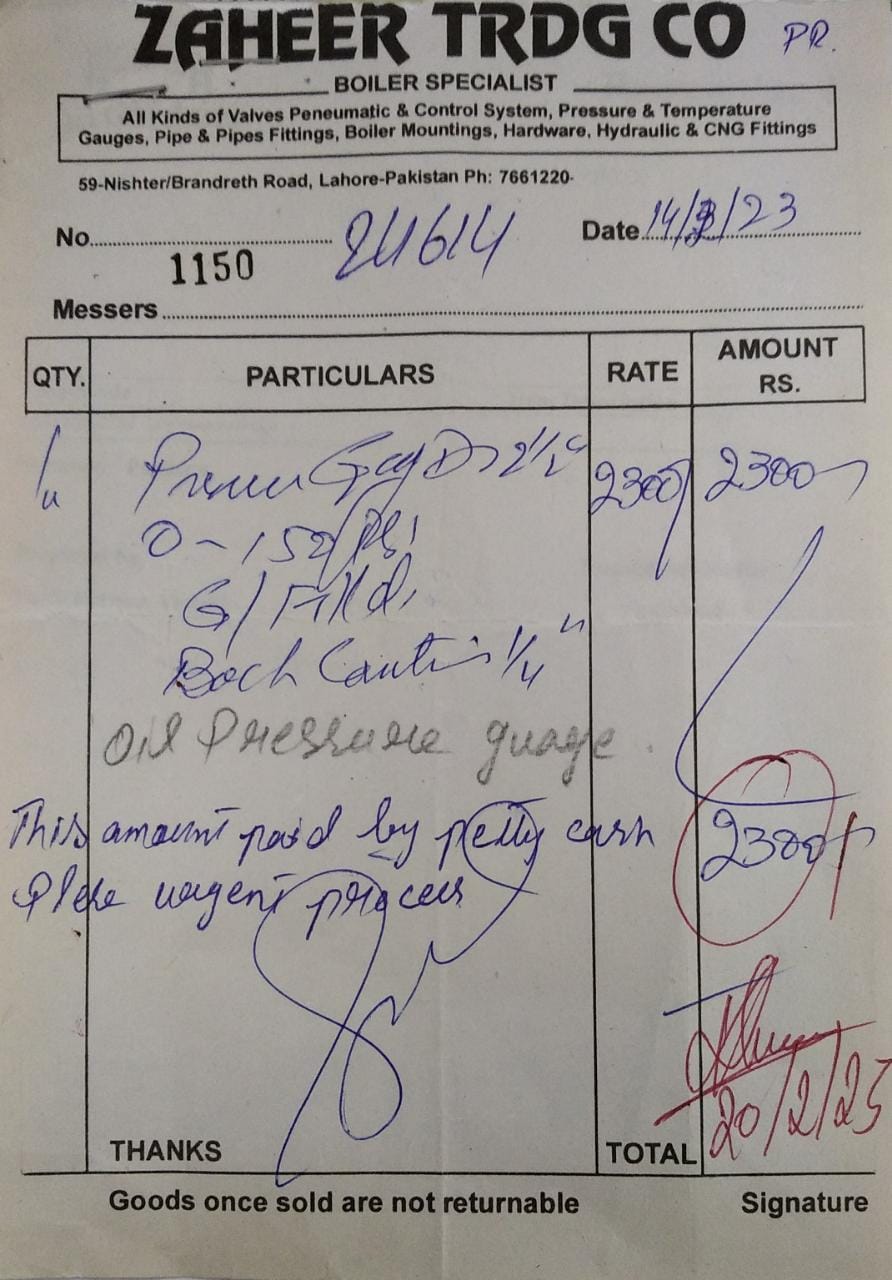 ZAHEER TRDG CO PR.
BOILER SPECIALIST
All Kinds of Valves Peneumatic & Control System, Pressure & Temperature
Gauges, Pipe & Pipes Fittings, Boiler Mountings, Hardware, Hydraulic & CNG Fittings
59-Nishter/Brandreth Road, Lahore-Pakistan Ph: 7661220-
No. 1150 Date 14/ /23
Messers
QTY. PARTICULARS RATE AMOUNT RS.
2 1/2" 2300 2300
0-150 PSI
G/Filld
Back 1/4"
Oil Pressure guage
This amount paid by petty cash 2300/
urgent process
20/2/23
THANKS TOTAL
Goods once sold are not returnable Signature